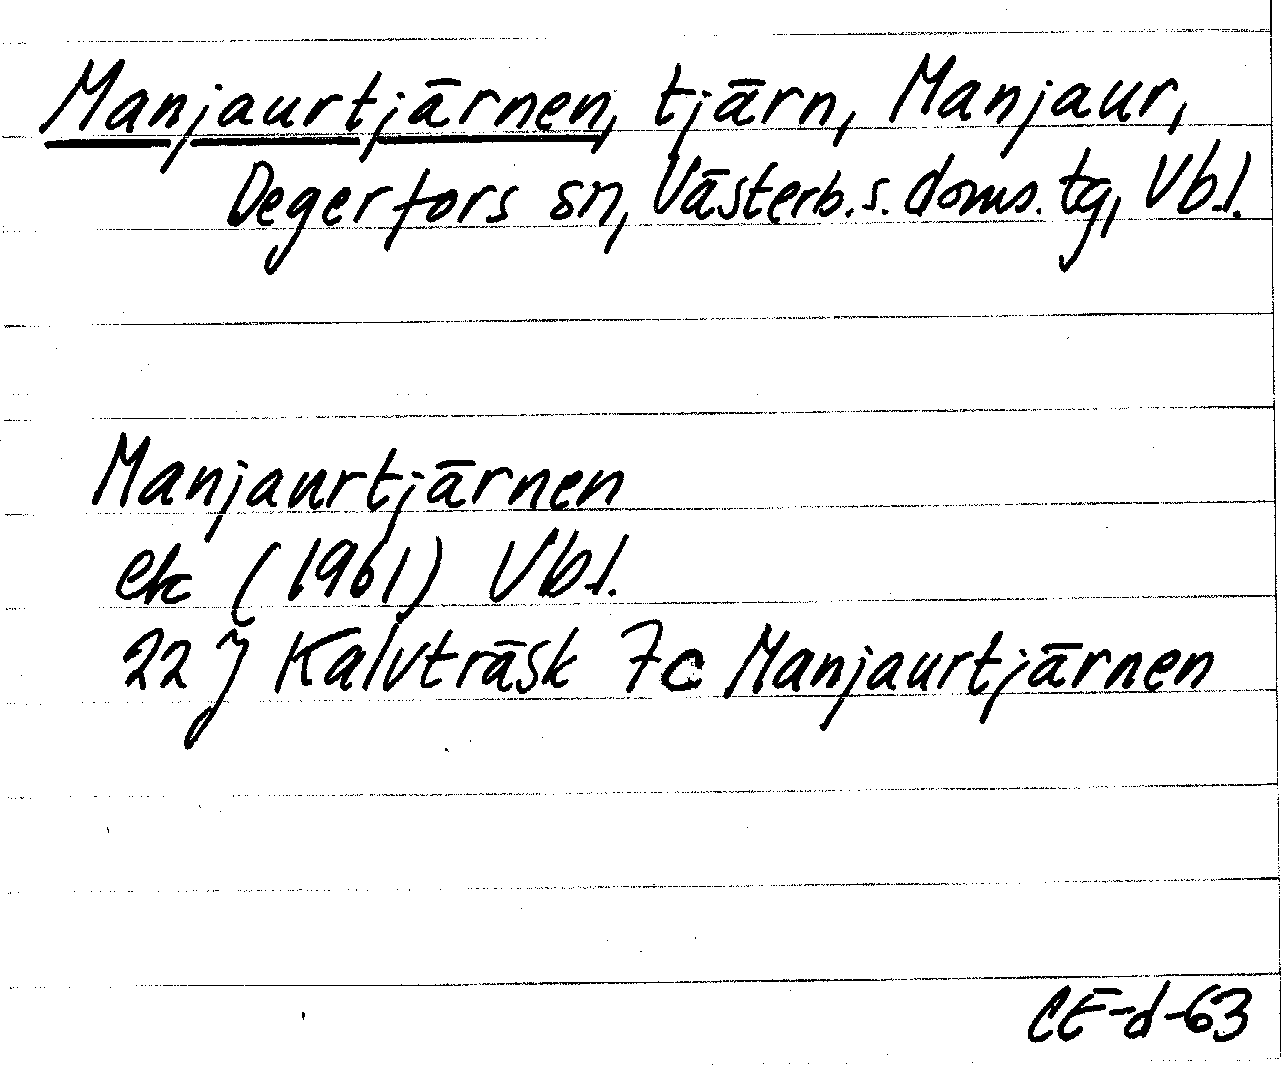 Manjaurtjärnen, tjärn, Manjaur,
Degerfors sn, Västerb. s. doms. tg, Vbl.
Manjaurtjärnen
ek (1961) Vbl.
22 J Kalvträsk 7c Manjaurtjärnen
CE-d-63